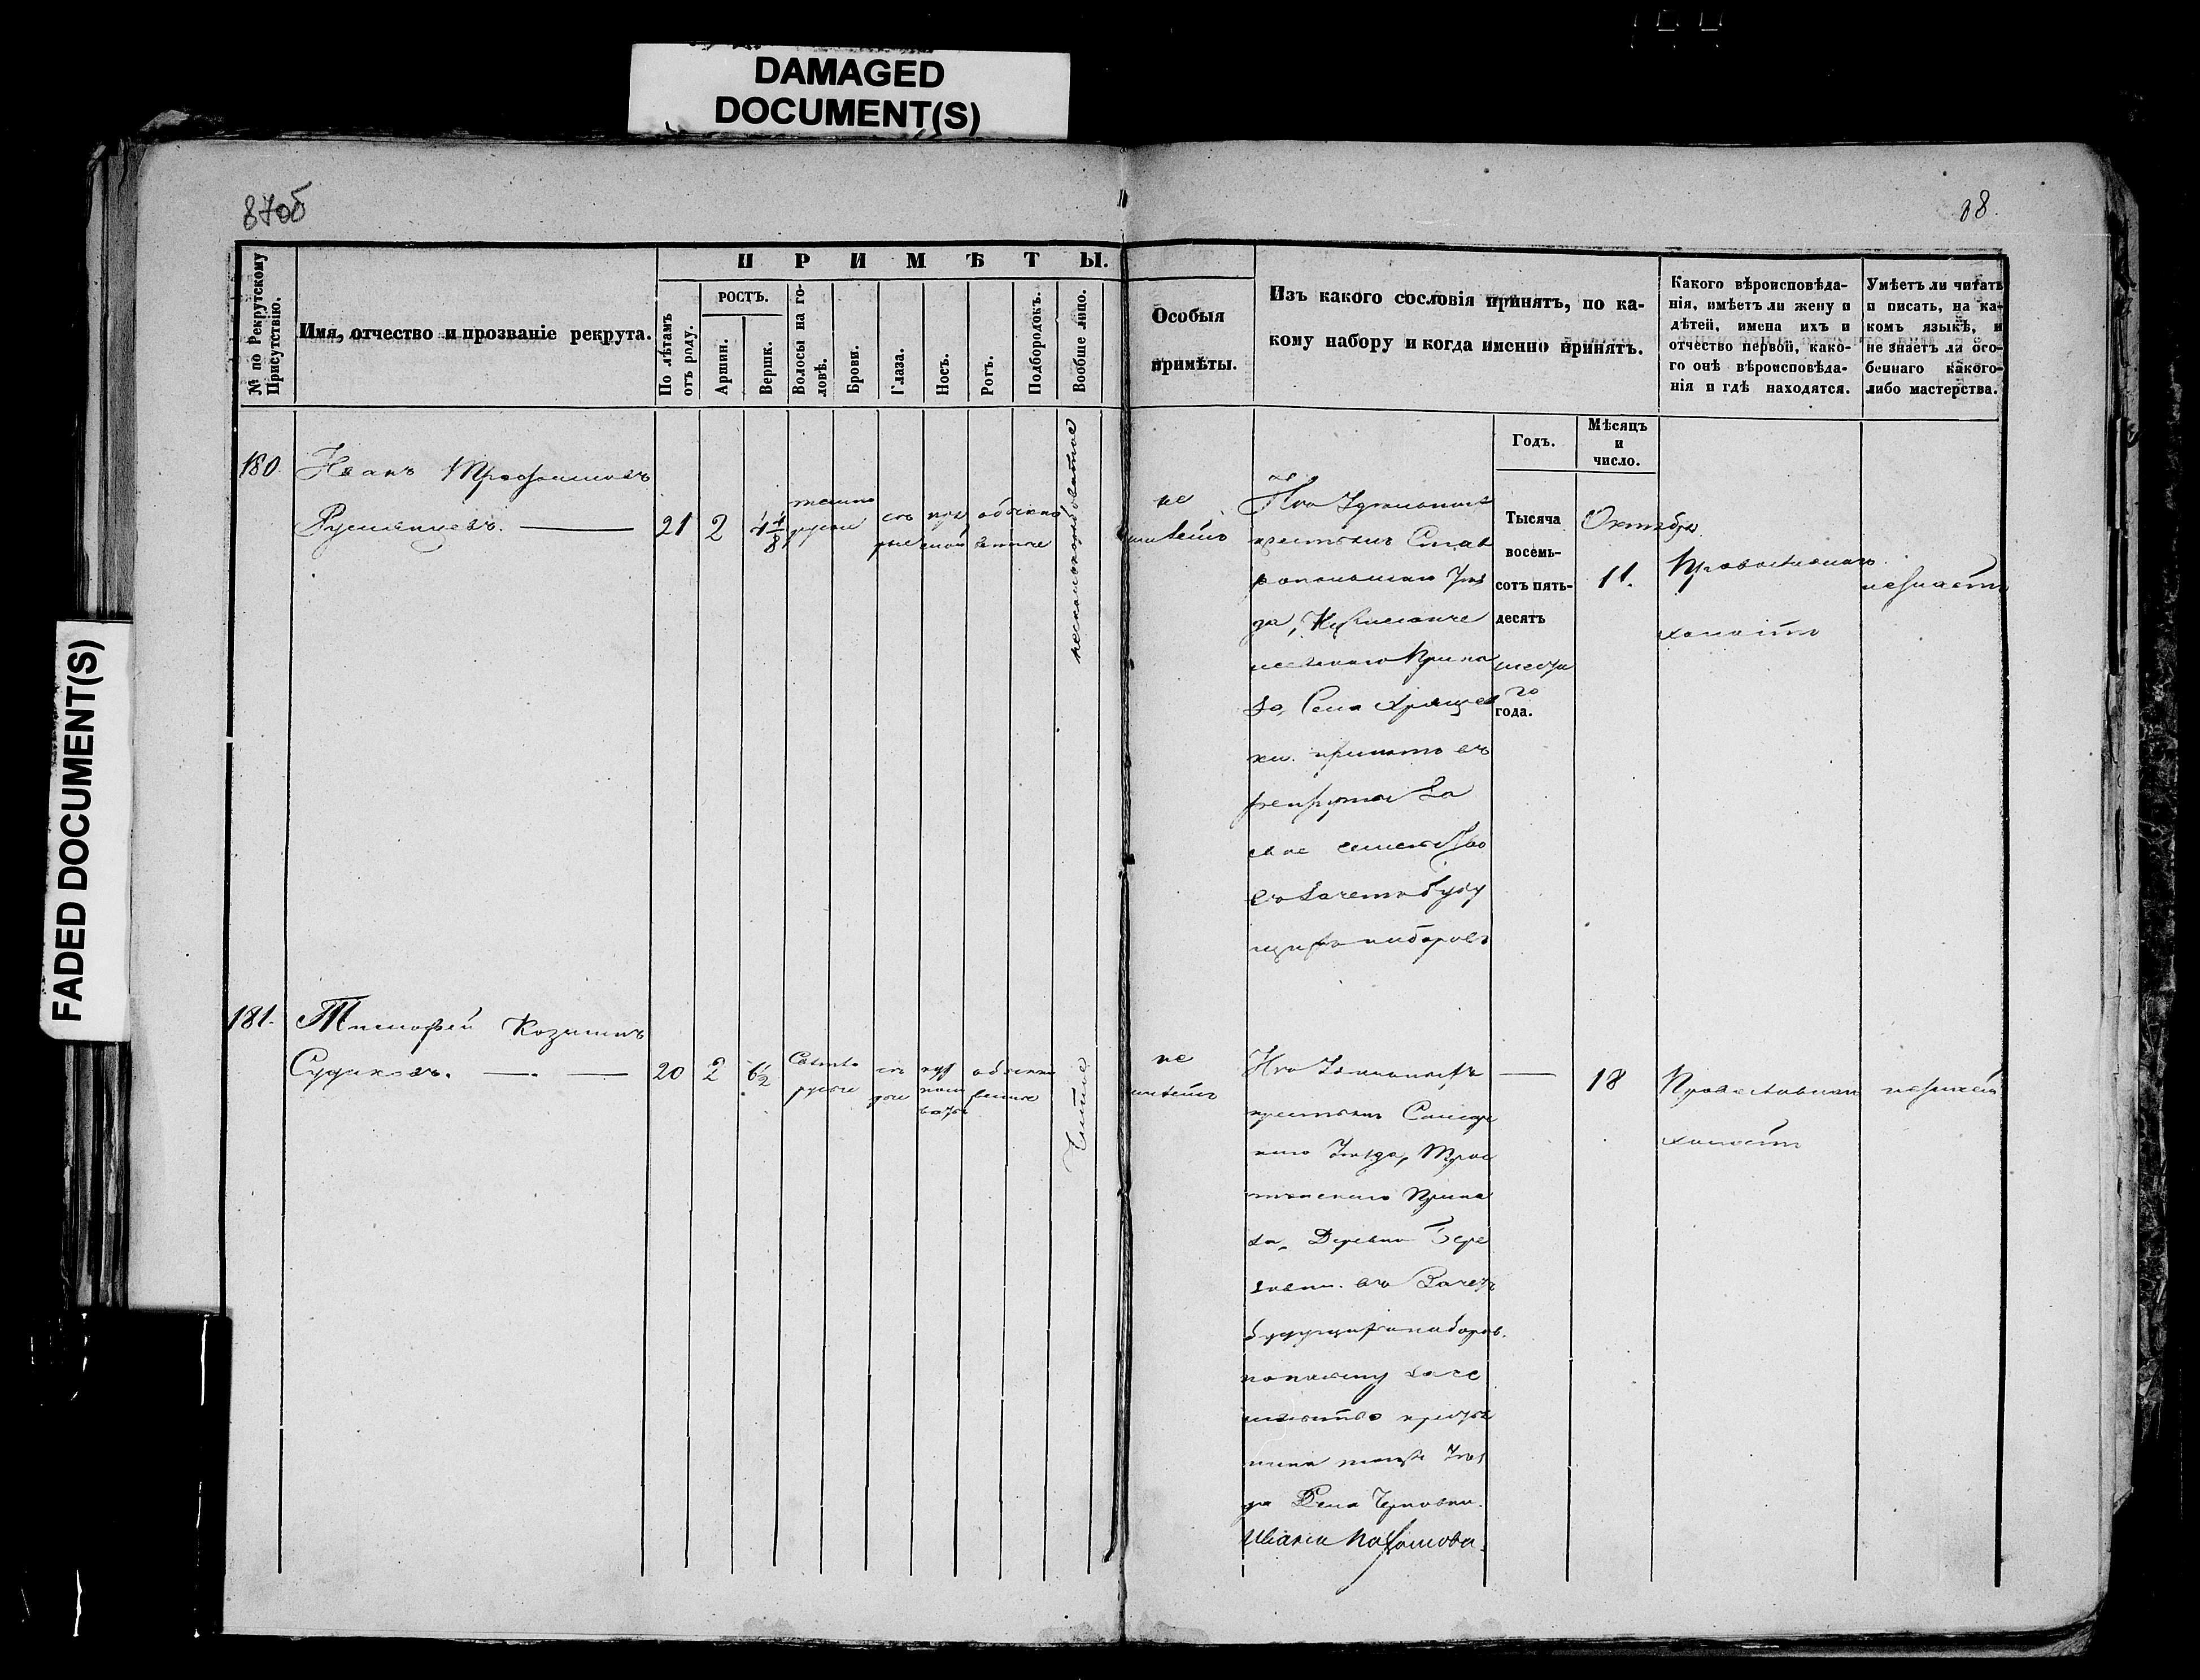 DAMAGED
DOCUMENT(S)
FADED DOCUMENT(S)
87об
88.
№ по Рекрутскому Присутствію.
Имя, отчество и прозваніе рекрута.
ПРИМѢТЫ.
По лѣтамъ отъ роду.
РОСТЪ.
Аршин.
Вершк.
Волосы на головѣ.
Брови.
Глаза.
Носъ.
Ротъ.
Подбородокъ.
Вообще лицо.
Особыя
примѣты.
Изъ какого сословія принятъ, по ка-
кому набору и когда именно принятъ.
Годъ.
Мѣсяцъ
и
число.
Какого вѣроисповѣда-
нія, имѣетъ ли жену и
дѣтей, имена ихъ и
отчество первой, како-
го онѣ вѣроисповѣда-
нія и гдѣ находятся.
Умѣетъ ли читать
и писать, на ка-
комъ языкѣ, и
не знаетъ ли осо-
беннаго какого-
либо мастерства.
180.
Иванъ Трофимовъ
Румянцевъ.
21
2
4 4/8
темно
русые
сѣ
рые
обыкно
венные
не
имѣетъ
Изъ Удѣльныхъ
крестьянъ Став
ропольскаго Уѣз
да,
Прика
за, Села Хрящев
ки. принятъ въ
рекруты за
свое семейство
въ зачетъ буду
щихъ наборовъ
Тысяча
восемь-
сотъ пять-
десятъ
шеста
го
года.
Октября
11.
Православнаго
холостъ
незнаетъ
181.
Тимофей Козминъ
Судаковъ.
20
2
6 1/2
Свѣтло
русые
сѣ
рые
обыкно
венные
Чистое
не
имѣетъ
Изъ Удѣльныхъ
крестьянъ Самар
скаго Уѣзда, Трос
тянскаго Прика
за, Деревни Бере
зовки. въ Зачетъ
будущихъ наборовъ.
крестья
нина тогоже Уѣз
да Села Черновки.
Ивана
18
Православнаго
холостъ
незнаетъ